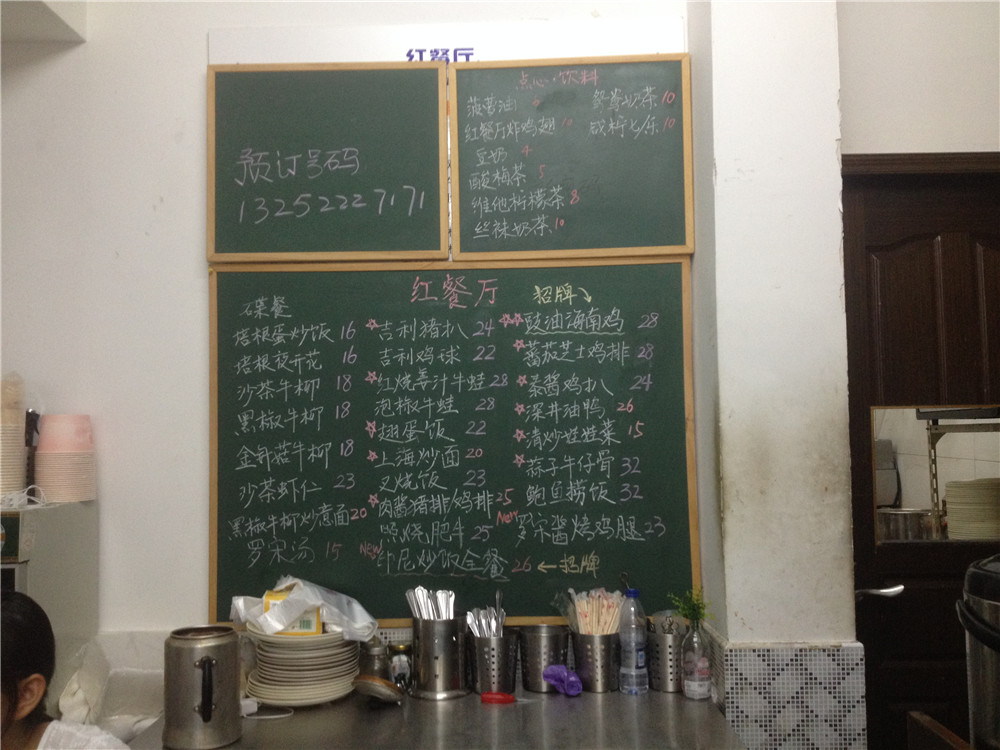 红餐厅
预订号码
13252227171
点心·饮料
菠萝油
红餐厅炸鸡翅 10
豆奶 4
酸梅茶 5
维他柠檬茶 8
丝袜奶茶 10
鸳鸯奶茶 10
咸柠七乐 10
红餐厅
招牌
碟餐
培根蛋炒饭 16
培根夜开花 16
沙茶牛柳 18
黑椒牛柳 18
金针菇牛柳 18
沙茶虾仁 23
黑椒牛柳炒意面 20
罗宋汤 15
吉利猪扒 24
吉利鸡球 22
红烧姜汁牛蛙 28
泡椒牛蛙 28
翅蛋饭 22
上海炒面 20
叉烧饭 23
肉酱猪排/鸡排 25
照烧肥牛 25
New 印尼炒饭全餐 26 ←招牌
豉油海南鸡 28
蕃茄芝士鸡排 28
泰酱鸡扒 24
深井油鸭 26
清炒娃娃菜 15
蒜子牛仔骨 32
鲍鱼捞饭 32
New 罗宋酱烤鸡腿 23